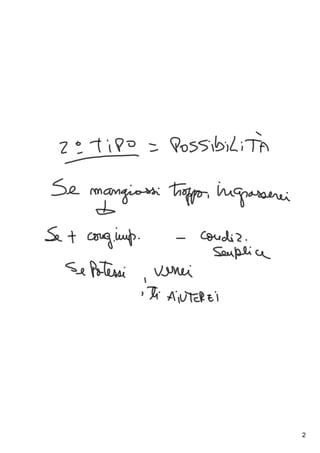 2º TIPO = POSSIBILITÀ
Se mangiassi troppo, ingrasserei
Se + cong. imp. – condiz.
semplice
Se Potessi, verrei
, Ti AIUTEREI
2